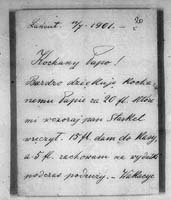 Łańcut. 7/7. 1901.
Kochany Papo!
Bardzo dziękuję Kocha-
nemu Papie za 20 fl. które
mi wczoraj pan
wręczył. 15 fl. dam do Kasy,
a 5 fl. zachowam na wydatki
podczas podróży. – Wakacye